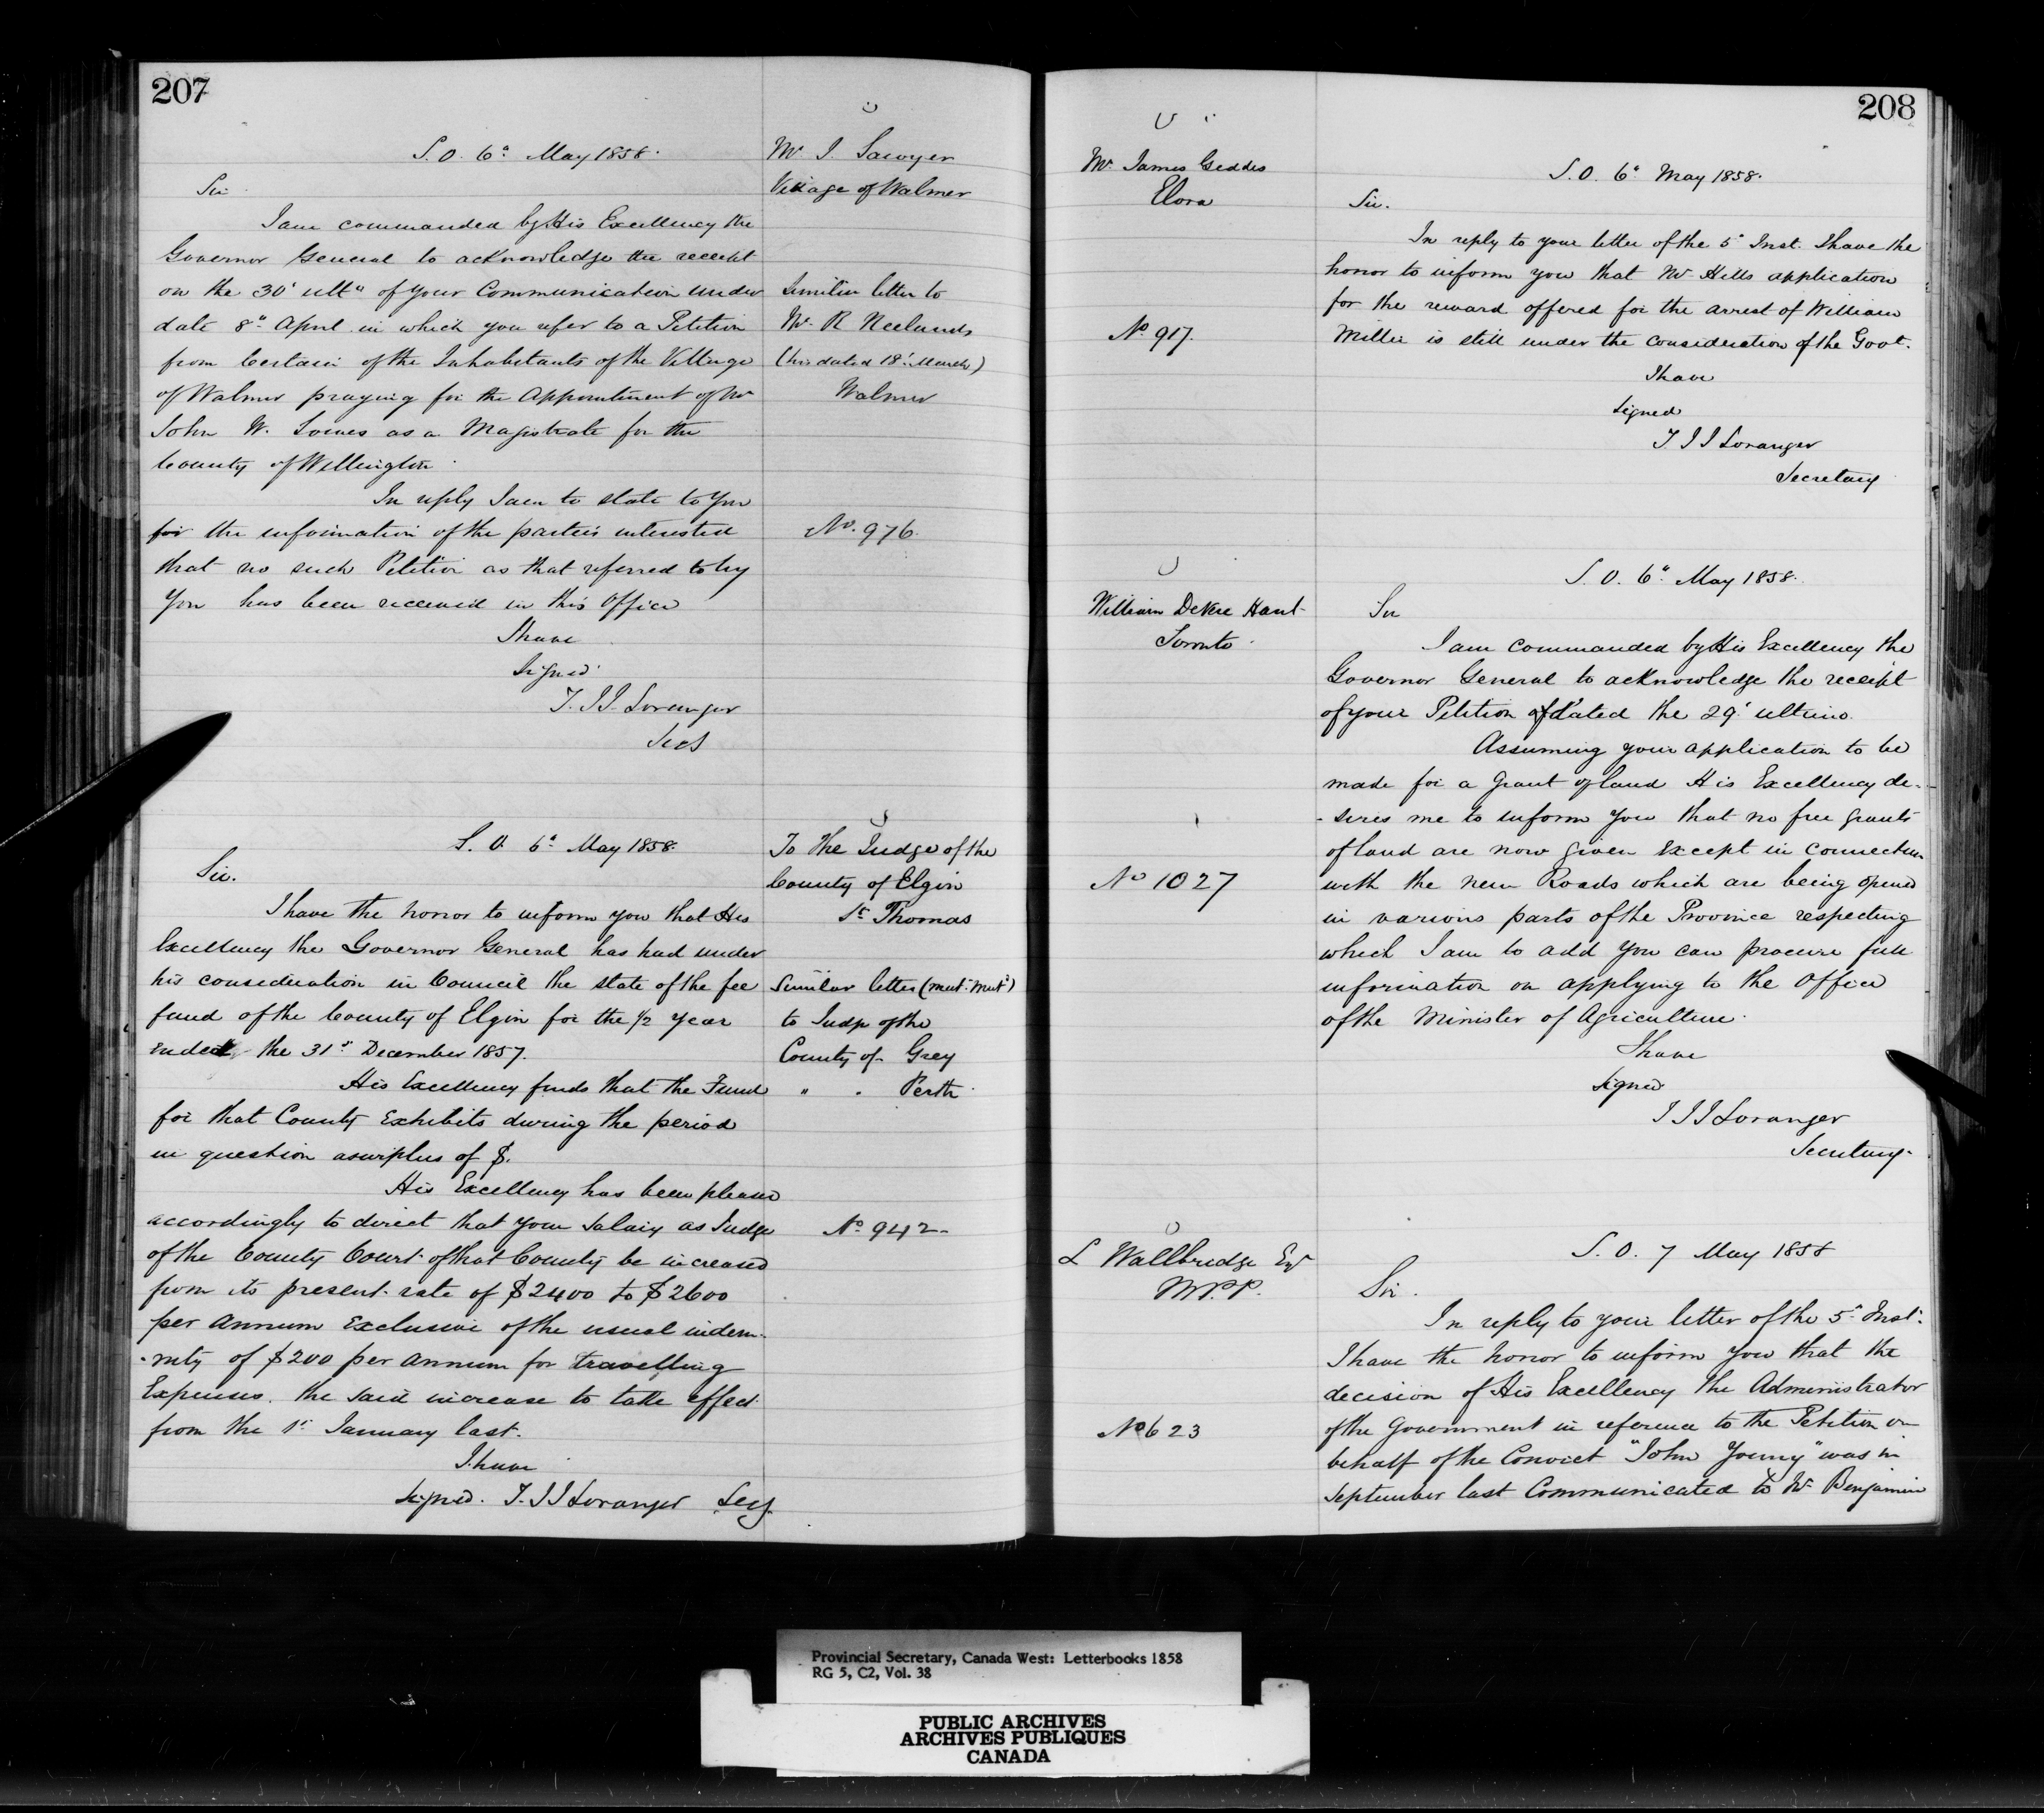 207
S. O. 6" May 1858.
Mr I. Sawyer
Village of Walmer
Sir
I am commanded by His Excellency the
Governor General to acknowledge the receipt
on the 30' ult° of your Communication under
date 8" April in which you refer to a Petition
from Certain of the Inhabitants of the Village
of Walmer praying for the Appointment of Mr
John W. as a Magistrate for the
County of Wellington
Similar letter to
Mr. R Neelands
(his dated 18' March)
Walmer
In reply I am to state to you
for the information of the parties interested
that no such Petition as that referred to by
You has been received in this Office
No. 976
I have
Signed
T. J J. Loranger
Secy
S. O. 6" May 1858.
To the Judge of the
County of Elgin
St Thomas
Sir.
I have the honor to inform you that His
Excellency the Governor General has had under
his consideration in Council the state of the fee
fund of the County of Elgin for the 1/2 Year
ended the 31st December 1857.
Similar letter (mut: mut:)
to Judge of the
County of Grey
" " Perth
His Excellency finds that the Fund
for that County Exhibits during the period
in question a surplus of $.
His Excellency has been pleased
accordingly to direct that your Salary as Judge
of the County Court of that County be increased
from its present rate of $2400 to $2600
per annum Exclusive of the usual indem-
-nity of $200 per annum for travelling
Expenses. the said increase to take effect
from the 1st January last.
No 942
I have
Signed. T. J J Loranger Secy.
208
Mr. James Geddes
Elora
S. O. 6" May 1858.
Sir.
In reply to your letter of the 5" Inst. I have the
honor to inform you that Mr Hills application
for the reward offered for the arrest of William
Miller is still under the consideration of the Govt.
No. 917.
I have
Signed
T. J J Loranger
Secretary
S. O. 6" May 1858.
William DeVere Hunt
Toronto
Sir
I am commanded by His Excellency the
Governor General to acknowledge the receipt
of your Petition of dated the 29' ultimo.
Assuming your application to be
made for a Grant of land His Excellency de-
-sires me to inform you that no free grants
of land are now given Except in connection
with the new Roads which are being opened
in various parts of the Province respecting
which I am to add you can procure full
information on applying to the Office
of the Minister of Agriculture.
No 1027
I have
Signed
T J J Loranger
Secretary.
L Wallbridge Esq
M.P.P.
S. O. 7 May 1858
Sir.
In reply to your letter of the 5" Inst.
I have the honor to inform you that the
decision of His Excellency the Administrator
of the Government in reference to the Petition on
behalf of the Convict "John Young" was in
September last Communicated to Mr Benjamin
No 623
Provincial Secretary, Canada West: Letterbooks 1858
RG 5, C2, Vol. 38
PUBLIC ARCHIVES
ARCHIVES PUBLIQUES
CANADA